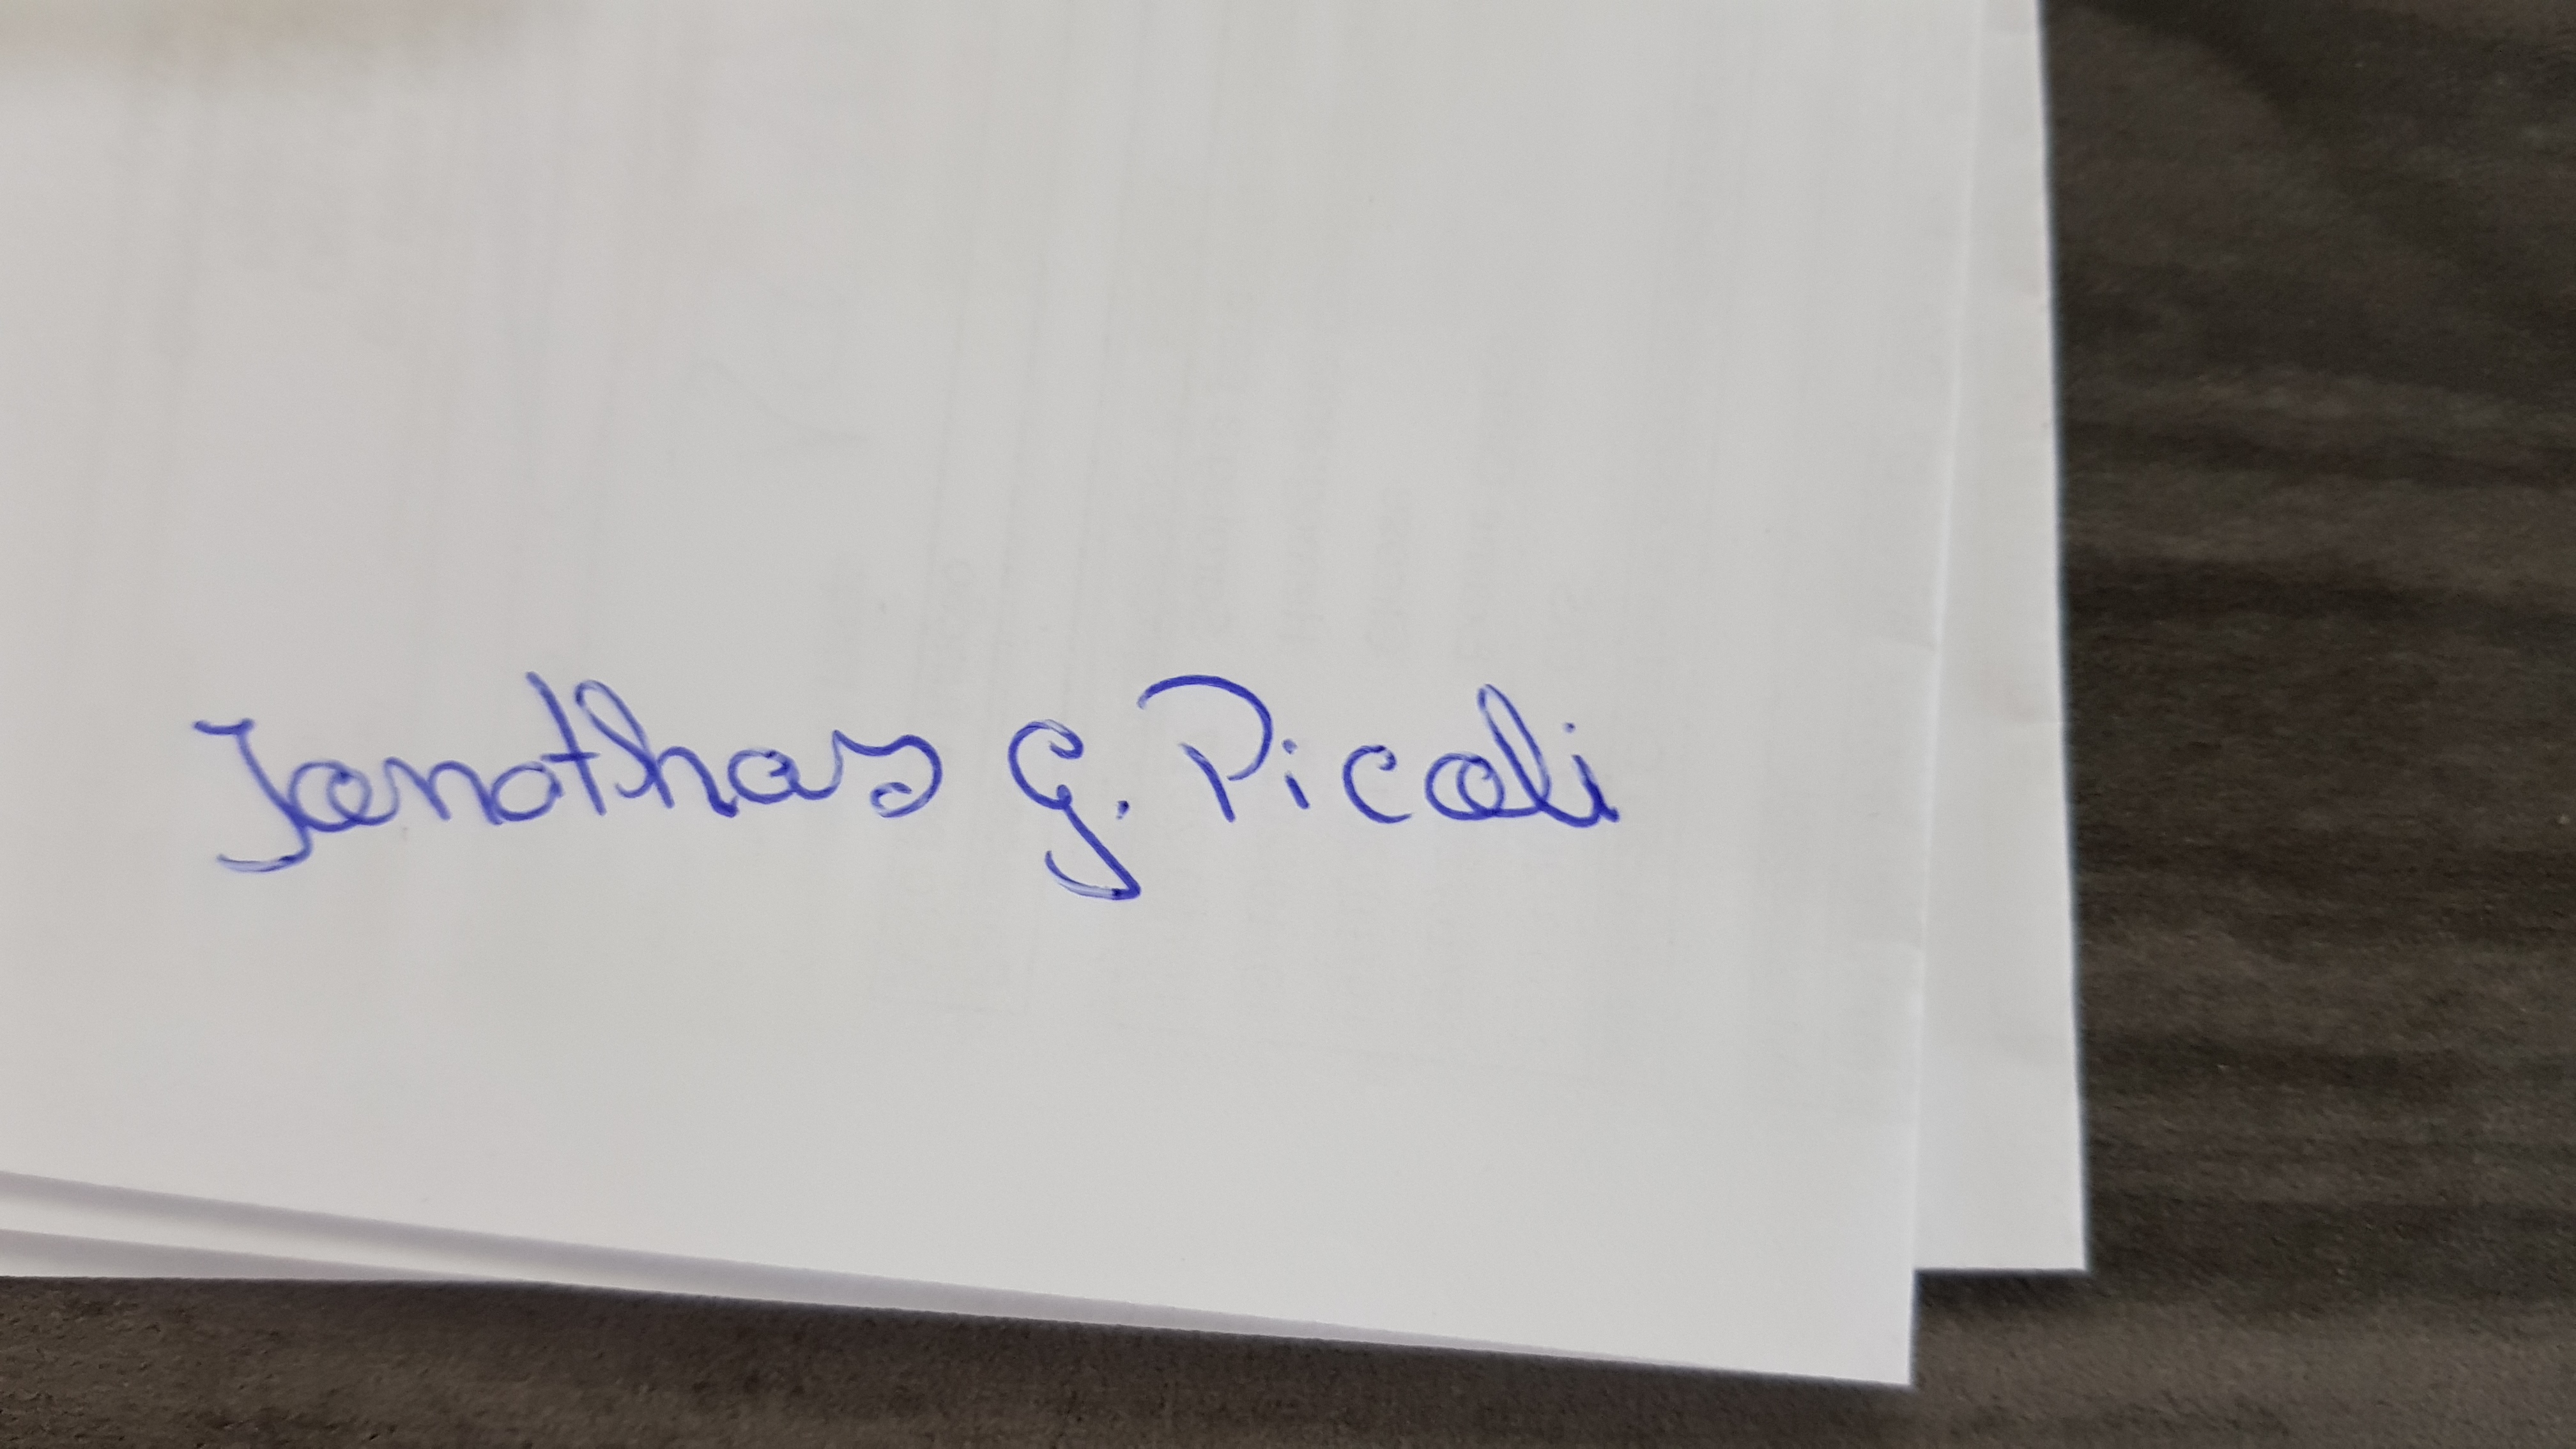 Jonathas G. Picoli